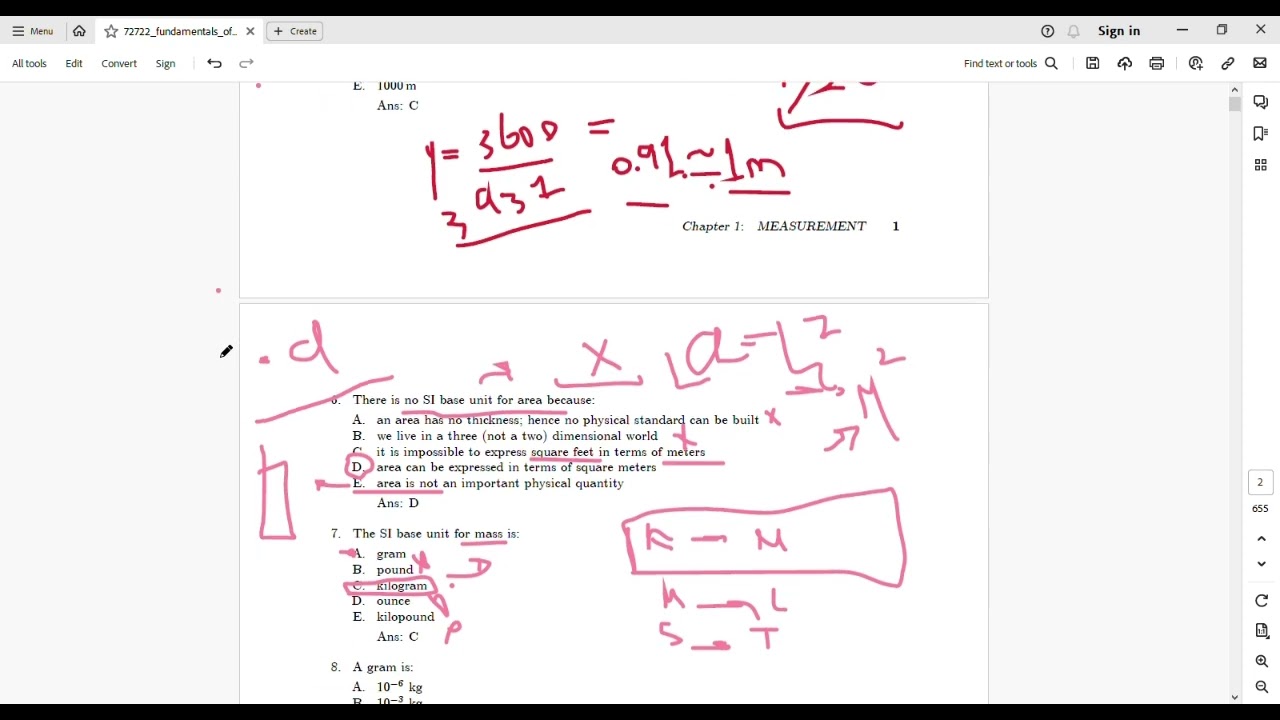 Menu 72722_fundamentals_of... Create Sign in
All tools Edit Convert Sign Find text or tools
E. 1000 m
Ans: C
y = 3600 =
0.91 ≈ 1m
Chapter 1: MEASUREMENT 1
d
x a = L²
M²
6. There is no SI base unit for area because:
A. an area has no thickness; hence no physical standard can be built x
B. we live in a three (not a two) dimensional world x
C. it is impossible to express square feet in terms of meters
D. area can be expressed in terms of square meters
E. area is not an important physical quantity
Ans: D
7. The SI base unit for mass is:
A. gram
B. pound
C. kilogram
D. ounce
E. kilopound
Ans: C
K — M
M — L
S — T
8. A gram is:
A. 10⁻⁶ kg
B. 10⁻³ kg
2
655